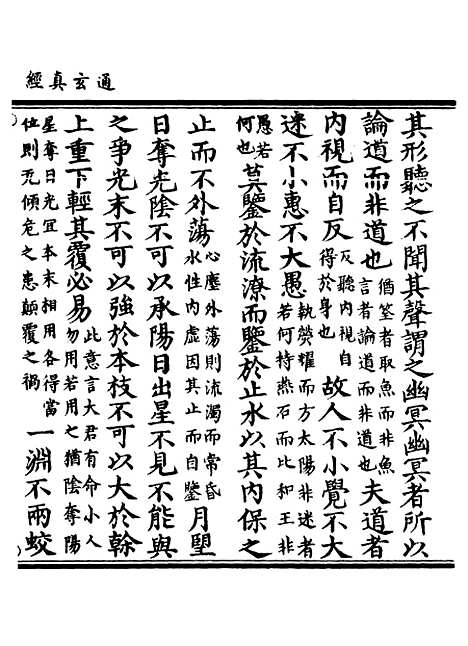 通玄真經
其形聽之不聞其聲謂之幽冥幽冥者所以
論道而非道也猶筌者取魚而非魚言者論道而非道也夫道者
内視而自反反聽内視自得於身也故人不小覺不大
迷不小惠不大愚執熒耀而方太陽非迷者若何持燕石而比和王非
愚若何也莫鑒於流潦而鑒於止水以其内保之
止而不外蕩心塵外蕩則流濁而常昏水性内虛因其止而自鑒月朢
日奪光陰不可以承陽日出星不見不能與
之爭光末不可以強於本枝不可以大於榦
上重下輕其覆必易此意言大君有命小人勿用若用之猶陰奪陽
星奪日光宜本末相用各得當位則无傾危之患顛覆之禍一淵不兩蛟